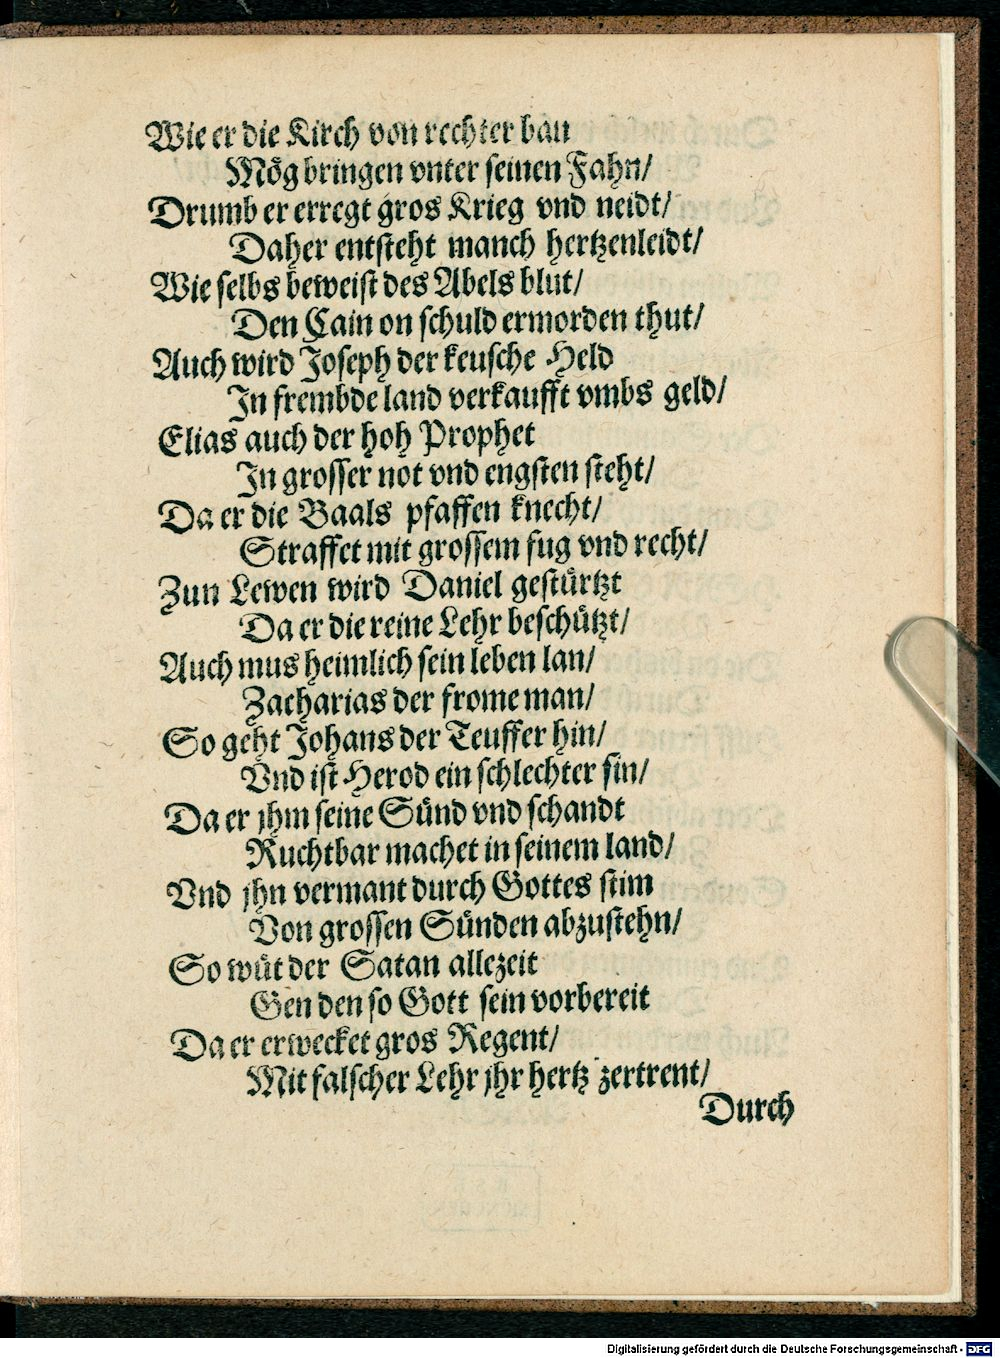 Wie er die Kirch von rechter ban
Mög bringen vnter seinen Fahn/
Drumb er erregt gros Krieg vnd neidt/
Daher entsteht manch hertzenleidt/
Wie selbs beweist des Abels blut/
Den Cain on schuld ermorden thut/
Auch wird Joseph der keusche Held
In frembde land verkaufft vmbs geld/
Elias auch der hoh Prophet
In grosser not vnd engsten steht/
Da er die Baals pfaffen knecht/
Straffet mit grossem fug vnd recht/
Zun Lewen wird Daniel gestürtzt
Da er die reine Lehr beschützt/
Auch mus heimlich sein leben lan/
Zacharias der frome man/
So geht Johans der Teuffer hin/
Vnd ist Herod ein schlechter sin/
Da er jhm seine Sünd vnd schandt
Ruchtbar machet in seinem land/
Vnd jhn vermant durch Gottes stim
Von grossen Sünden abzustehn/
So wüt der Satan allezeit
Gen den so Gott sein vorbereit
Da er erwecket gros Regent/
Mit falscher Lehr jhr hertz zertrent/
Durch
Digitalisierung gefördert durch die Deutsche Forschungsgemeinschaft - DFG